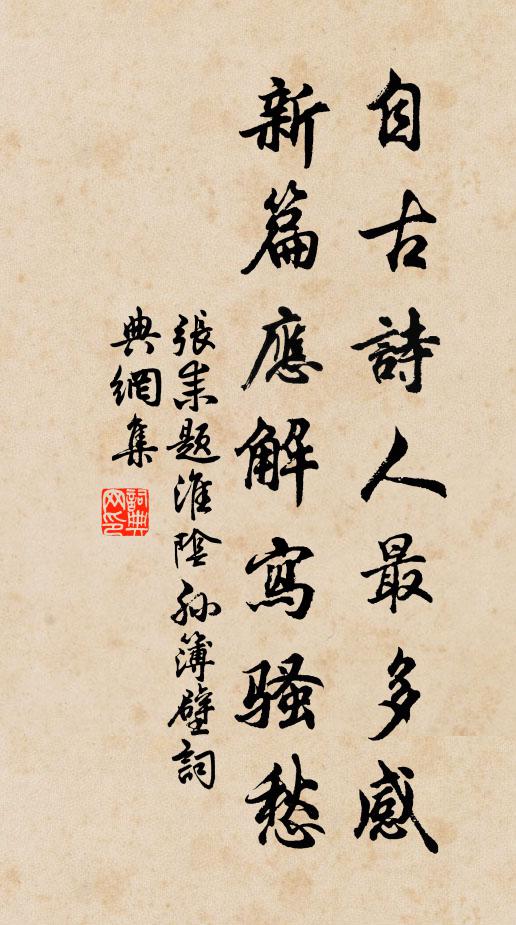 自古詩人最多感
新篇應解寫騷愁
張耒題淮陰孫簿壁詞
典網集
詞典網印